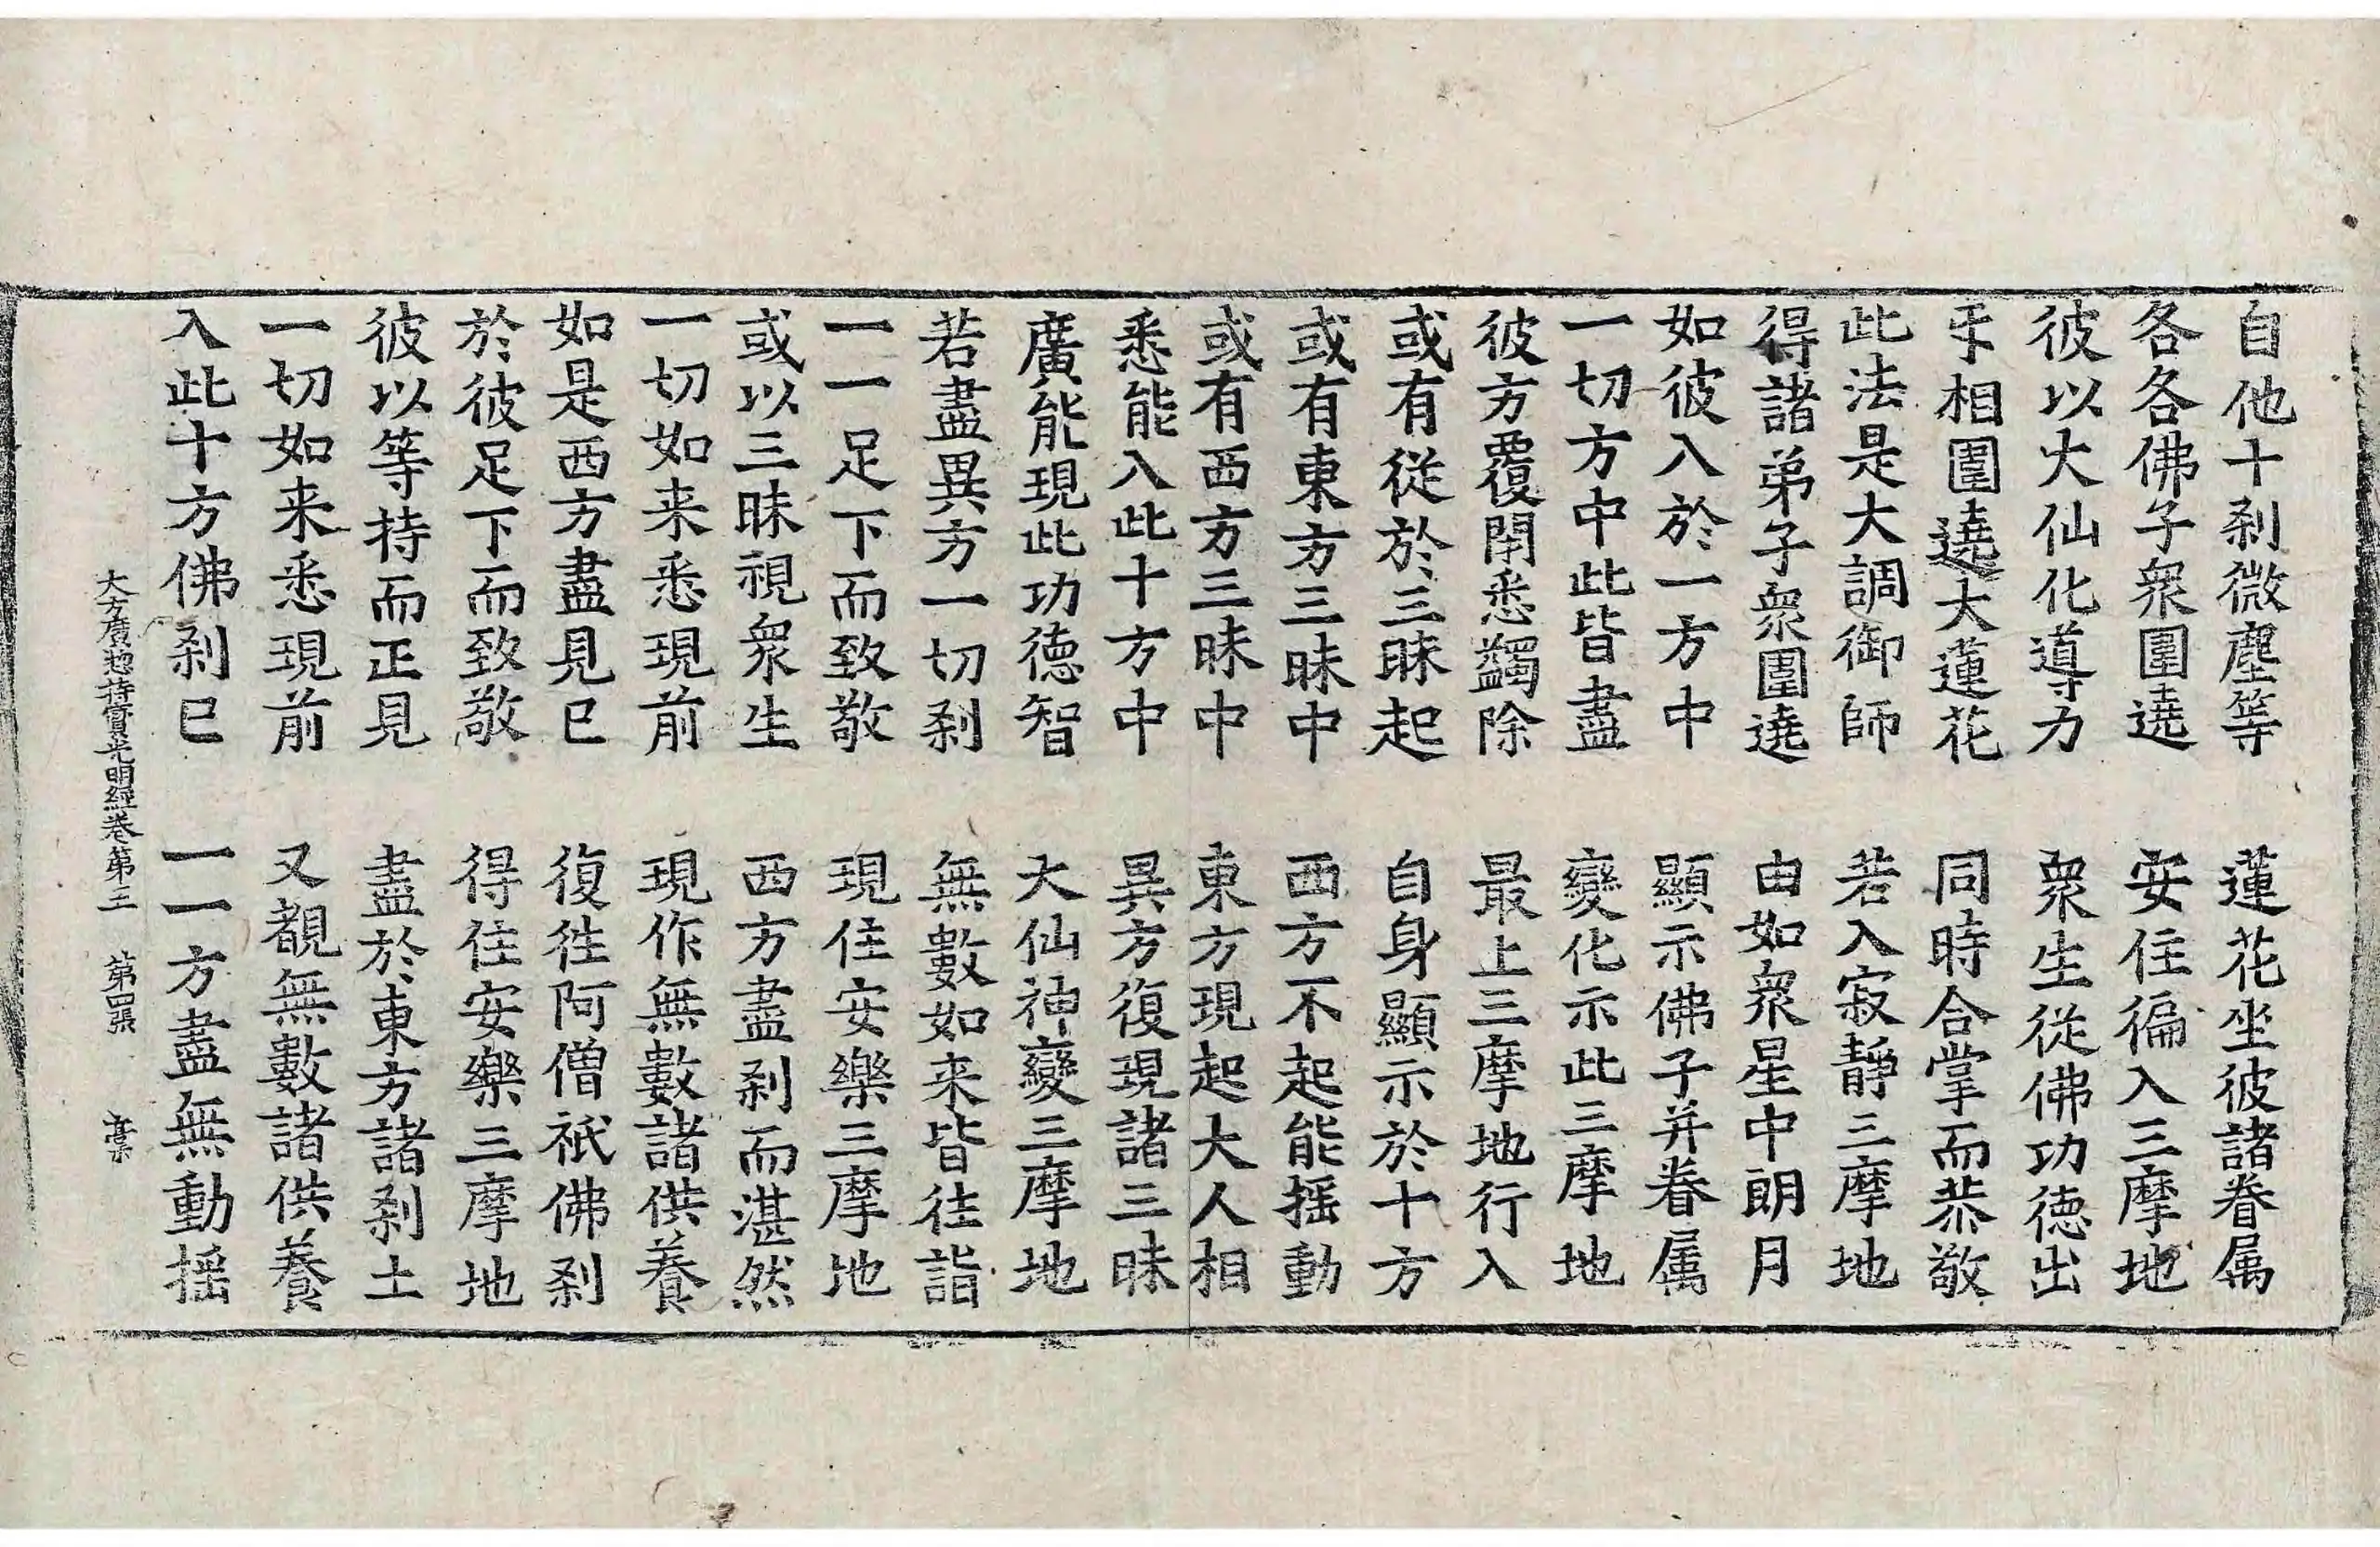 自他十刹微塵等　蓮花坐彼諸眷属
各各佛子衆圍遶　安住徧入三摩地
彼以大仙化導力　衆生從佛功德出
㸦相圍遶大蓮花　同時合掌而恭敬
此法是大調御師　若入寂靜三摩地
得諸弟子衆圍遶　由如衆星中朗月
如彼入於一方中　顯示佛子并眷属
一切方中此皆盡　變化示此三摩地
彼方覆閉悉蠲除　最上三摩地行入
或有從於三昧起　自身顯示於十方
或有東方三昧中　西方不起能揺動
或有西方三昧中　東方現起大人相
悉能入此十方中　異方復現諸三昧
廣能現此功德智　大仙神變三摩地
若盡異方一切刹　無數如来皆往詣
一一足下而致敬　現住安樂三摩地
或以三昧視衆生　西方盡刹而湛然
一切如来悉現前　現作無數諸供養
如是西方盡見已　復徃阿僧祇佛刹
於彼足下而致敬　得住安樂三摩地
彼以等持而正見　盡於東方諸刹土
一切如来悉現前　又覩無數諸供養
入此十方佛刹已　一一方盡無動揺
大方廣揔持寳光明經卷第三　第四張